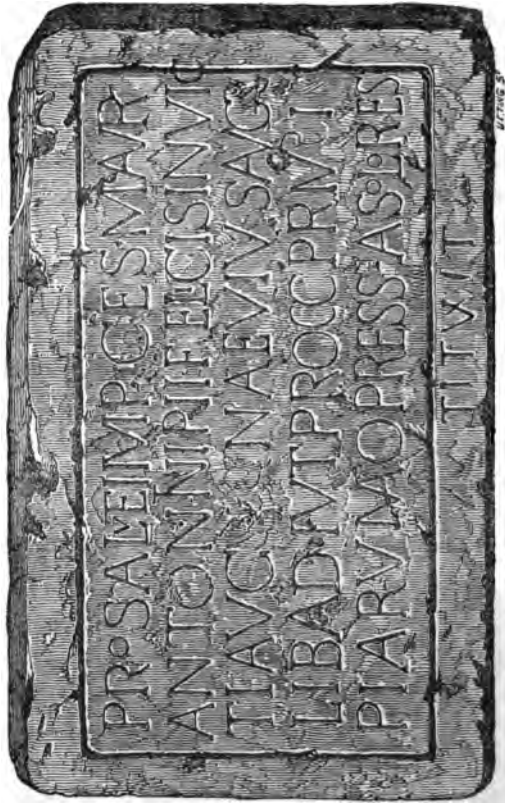 PROSALVTEIMP·CES·M·AVR
ANTONINIPIIFELICISINVIC
TIAVG NAEVIVSAVG
LIBADIVTPROCCPRINCI
PIARVINAOPRESS·ASOLORES
TITVIT